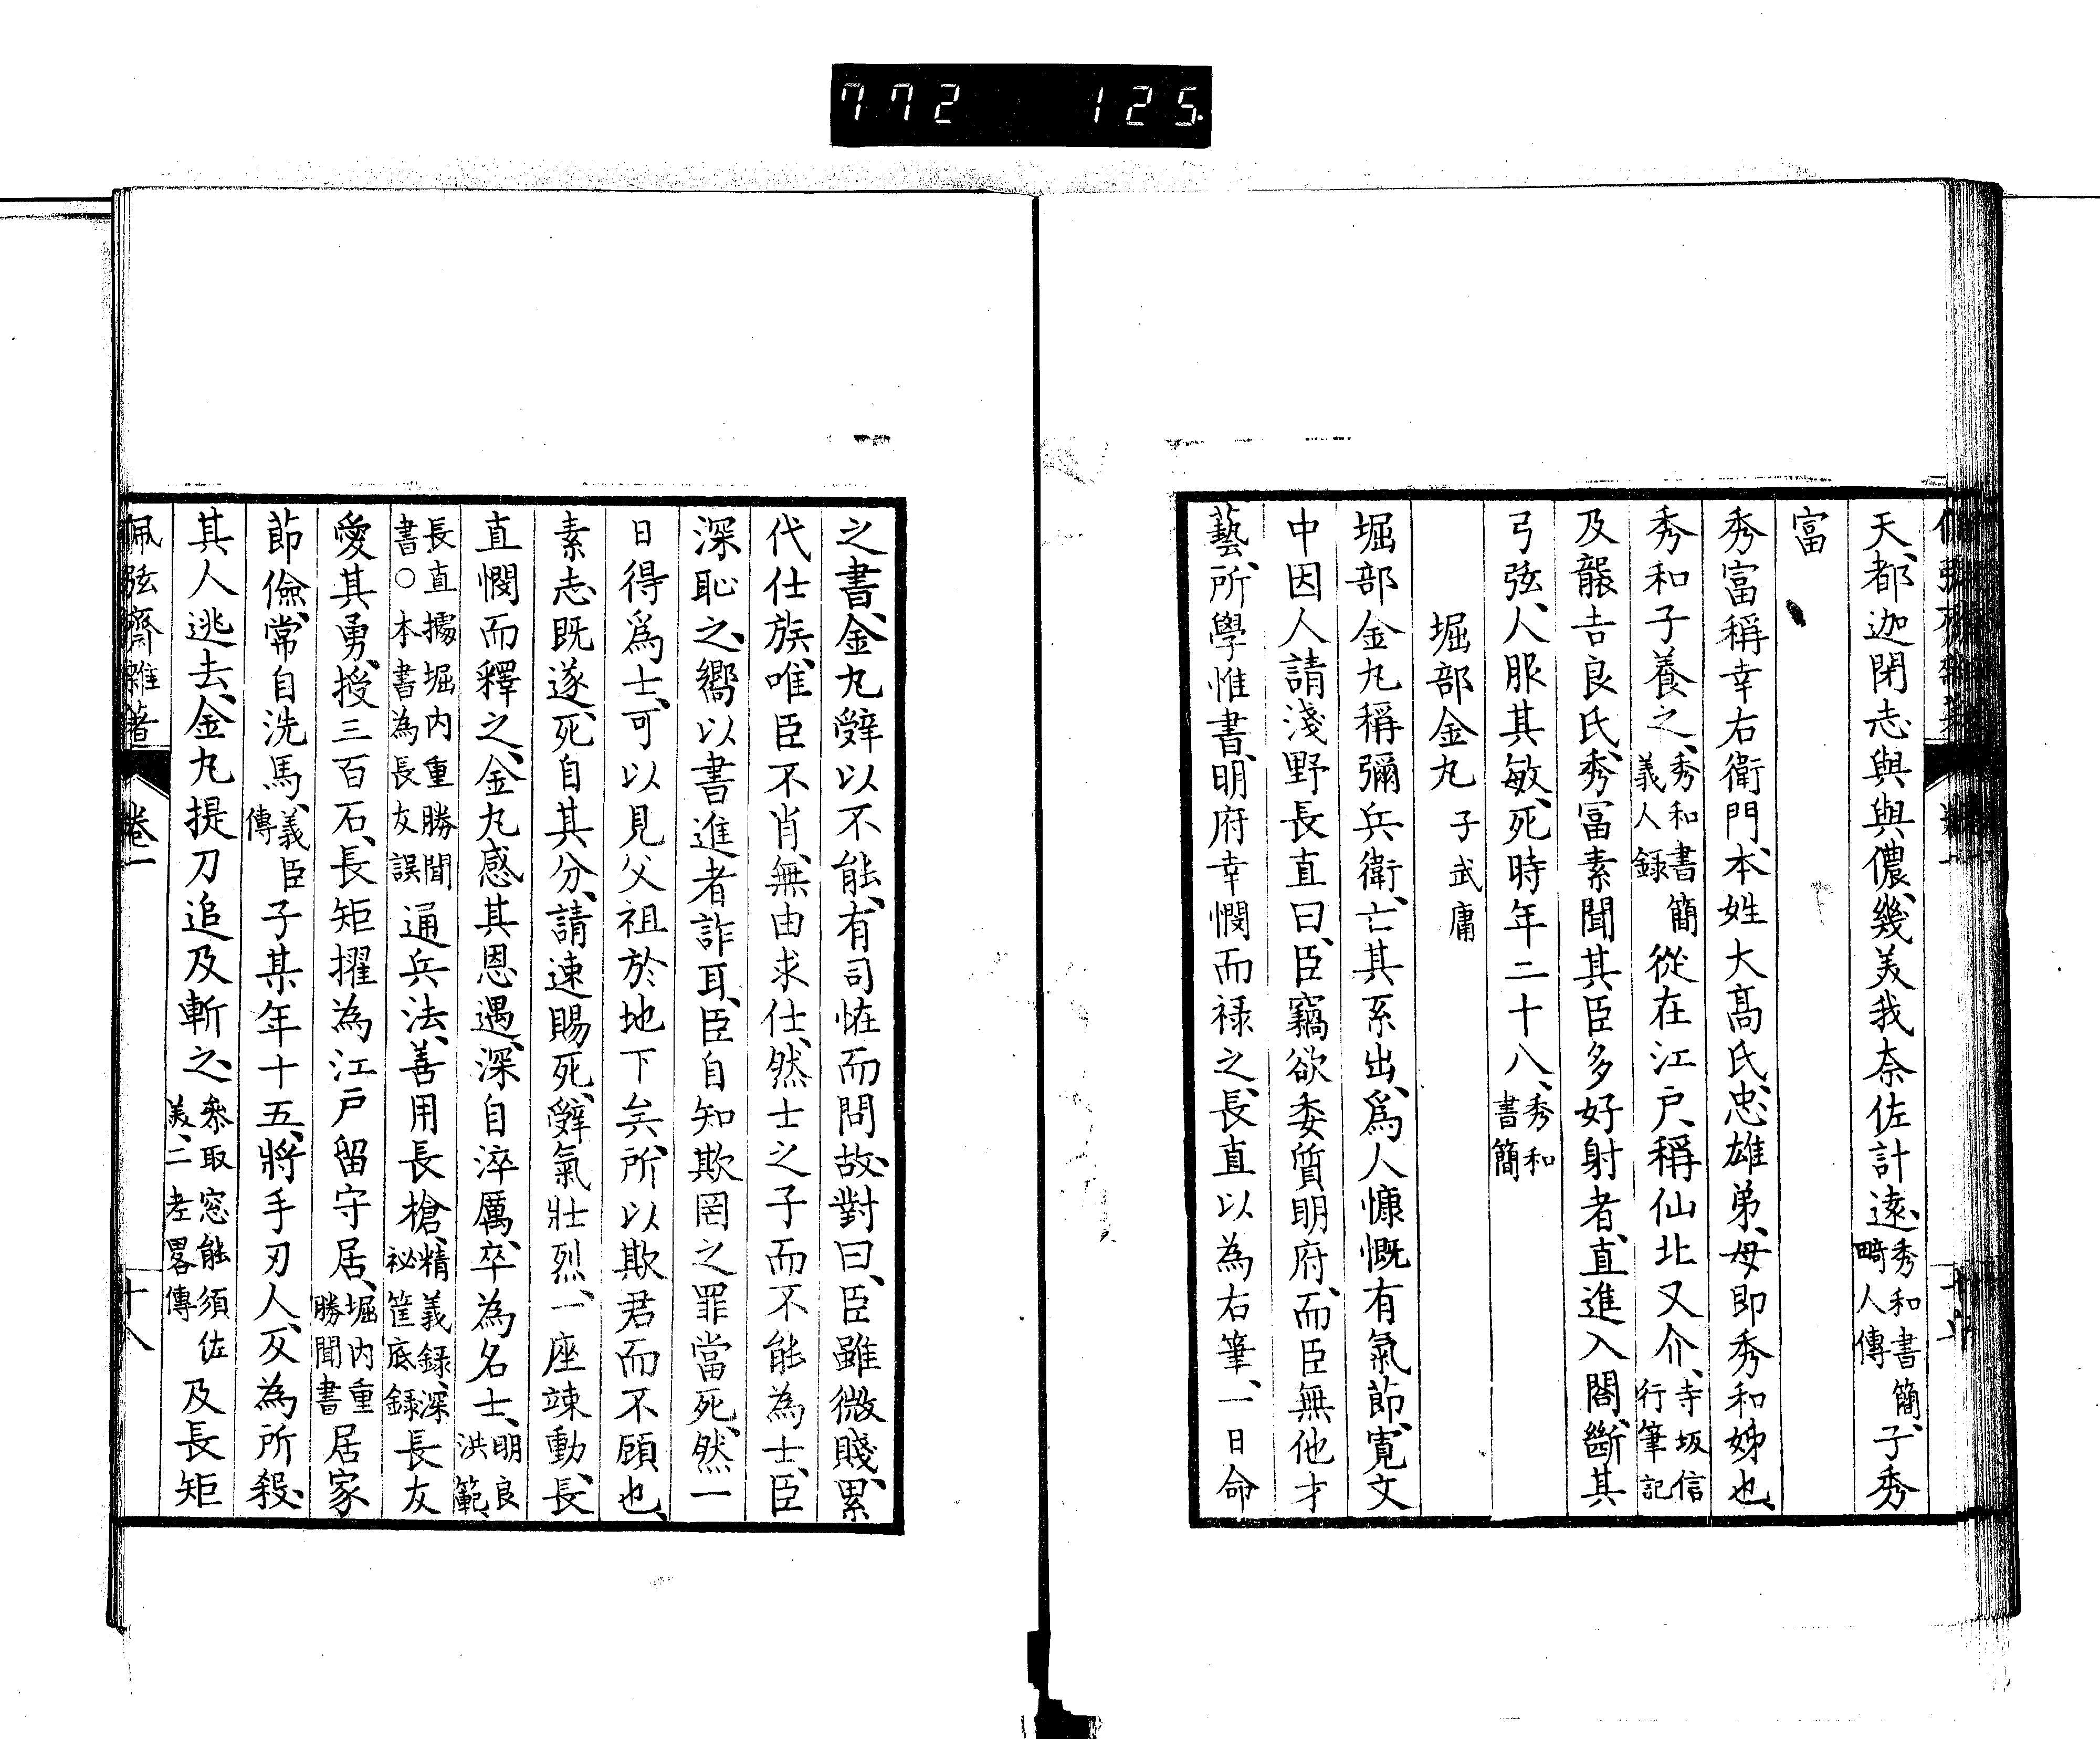 772 125
天、都迦閇志與與儂、幾美我奈佐計遠、秀和書簡、畸人傳子秀
富
秀富稱幸右衛門、本姓大髙氏、忠雄弟、母即秀和姊也、
秀和子養之、秀和書簡義人録從在江戸、稱仙北又介、寺坂信行筆記
及襲吉良氏、秀冨素聞其臣多好射者、直進入閤、斷其
弓弦、人服其敏、死時年二十八、秀和書簡
堀部金丸 子武庸
堀部金丸稱彌兵衛、亡其系出、爲人慷慨有氣節、寛文
中因人請淺野長直曰、臣竊欲委質明府、而臣無他才
藝、所學惟書、明府幸憫而祿之、長直以為右筆、一日命
之書、金丸辭以不能、有司恠而問故、對曰、臣雖微賤、累
代仕族、唯臣不肖、無由求仕、然士之子而不能為士、臣
深恥之、嚮以書進者詐耳、臣自知欺罔之罪當死、然一
日得爲士、可以見父祖於地下矣、所以欺君而不顧也、
素志既遂、死自其分、請速賜死、辭氣壯烈、一座竦動、長
直憫而釋之、金丸感其恩遇、深自淬厲、卒為名士、明良洪範、
長直據堀内重勝聞書○本書為長友誤通兵法、善用長槍、精義録、深祕筐底録長友
愛其勇、授三百石、長矩擢為江戸留守居、堀内重勝聞書居家
節儉、常自洗馬、義臣傳子某年十五、將手刃人、反為所殺、
其人逃去、金丸提刀追及斬之、叅取窓能須佐美、二老畧傳及長矩
佩弦齋雜著 卷一 十八